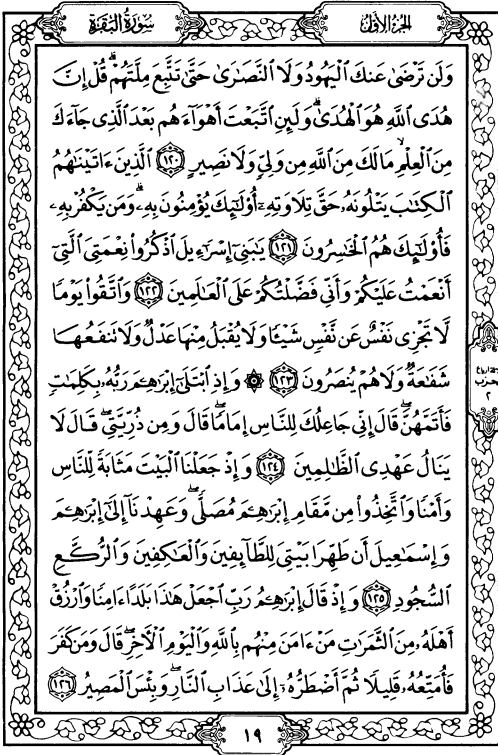 سُورَةُ البَقَرَةِ
الجُزْءُ الأَوَّلُ
وَلَن تَرْضَىٰ عَنكَ ٱلْيَهُودُ وَلَا ٱلنَّصَٰرَىٰ حَتَّىٰ تَتَّبِعَ مِلَّتَهُمْ ۗ قُلْ إِنَّ
هُدَى ٱللَّهِ هُوَ ٱلْهُدَىٰ ۗ وَلَئِنِ ٱتَّبَعْتَ أَهْوَآءَهُم بَعْدَ ٱلَّذِى جَآءَكَ
مِنَ ٱلْعِلْمِ ۙ مَا لَكَ مِنَ ٱللَّهِ مِن وَلِىٍّ وَلَا نَصِيرٍ ١٢٠ ٱلَّذِينَ ءَاتَيْنَٰهُمُ
ٱلْكِتَٰبَ يَتْلُونَهُۥ حَقَّ تِلَاوَتِهِۦٓ أُو۟لَٰٓئِكَ يُؤْمِنُونَ بِهِۦ ۗ وَمَن يَكْفُرْ بِهِۦ
فَأُو۟لَٰٓئِكَ هُمُ ٱلْخَٰسِرُونَ ١٢١ يَٰبَنِىٓ إِسْرَٰٓءِيلَ ٱذْكُرُوا۟ نِعْمَتِىَ ٱلَّتِىٓ
أَنْعَمْتُ عَلَيْكُمْ وَأَنِّى فَضَّلْتُكُمْ عَلَى ٱلْعَٰلَمِينَ ١٢٢ وَٱتَّقُوا۟ يَوْمًا
لَّا تَجْزِى نَفْسٌ عَن نَّفْسٍ شَيْـًٔا وَلَا يُقْبَلُ مِنْهَا عَدْلٌ وَلَا تَنفَعُهَا
شَفَٰعَةٌ وَلَا هُمْ يُنصَرُونَ ١٢٣ ۞ وَإِذِ ٱبْتَلَىٰٓ إِبْرَٰهِـۧمَ رَبُّهُۥ بِكَلِمَٰتٍ
فَأَتَمَّهُنَّ ۖ قَالَ إِنِّى جَاعِلُكَ لِلنَّاسِ إِمَامًا ۖ قَالَ وَمِن ذُرِّيَّتِى ۖ قَالَ لَا
يَنَالُ عَهْدِى ٱلظَّٰلِمِينَ ١٢٤ وَإِذْ جَعَلْنَا ٱلْبَيْتَ مَثَابَةً لِّلنَّاسِ
وَأَمْنًا وَٱتَّخِذُوا۟ مِن مَّقَامِ إِبْرَٰهِـۧمَ مُصَلًّى ۖ وَعَهِدْنَآ إِلَىٰٓ إِبْرَٰهِـۧمَ
وَإِسْمَٰعِيلَ أَن طَهِّرَا بَيْتِىَ لِلطَّآئِفِينَ وَٱلْعَٰكِفِينَ وَٱلرُّكَّعِ
ٱلسُّجُودِ ١٢٥ وَإِذْ قَالَ إِبْرَٰهِـۧمُ رَبِّ ٱجْعَلْ هَٰذَا بَلَدًا ءَامِنًا وَٱرْزُقْ
أَهْلَهُۥ مِنَ ٱلثَّمَرَٰتِ مَنْ ءَامَنَ مِنْهُم بِٱللَّهِ وَٱلْيَوْمِ ٱلْءَاخِرِ ۖ قَالَ وَمَن كَفَرَ
فَأُمَتِّعُهُۥ قَلِيلًا ثُمَّ أَضْطَرُّهُۥٓ إِلَىٰ عَذَابِ ٱلنَّارِ ۖ وَبِئْسَ ٱلْمَصِيرُ ١٢٦
حزب
٢
١٩